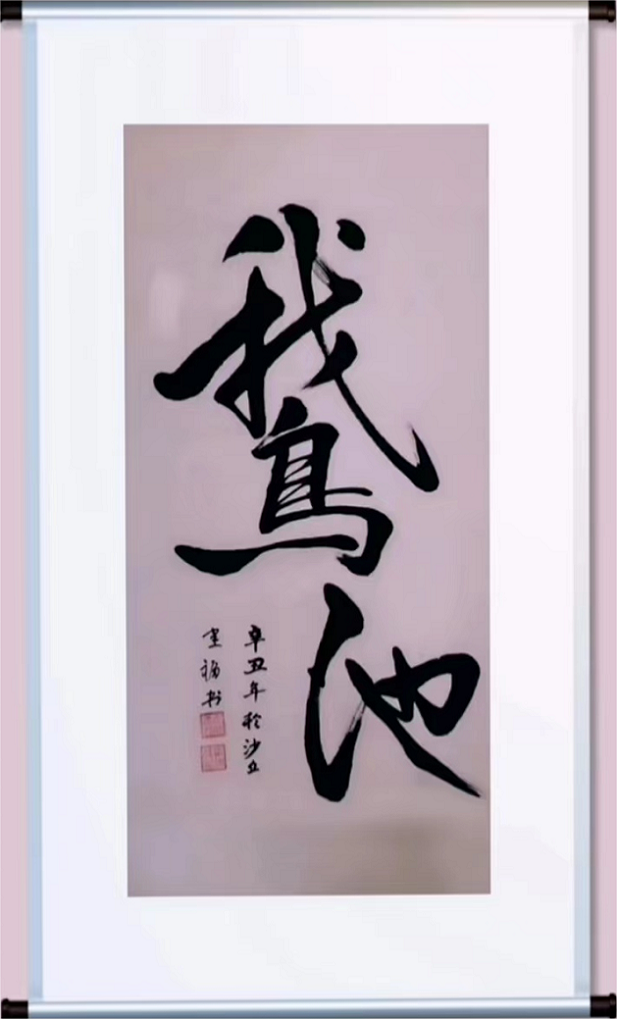 鵞池
辛丑年於沙丘
福书